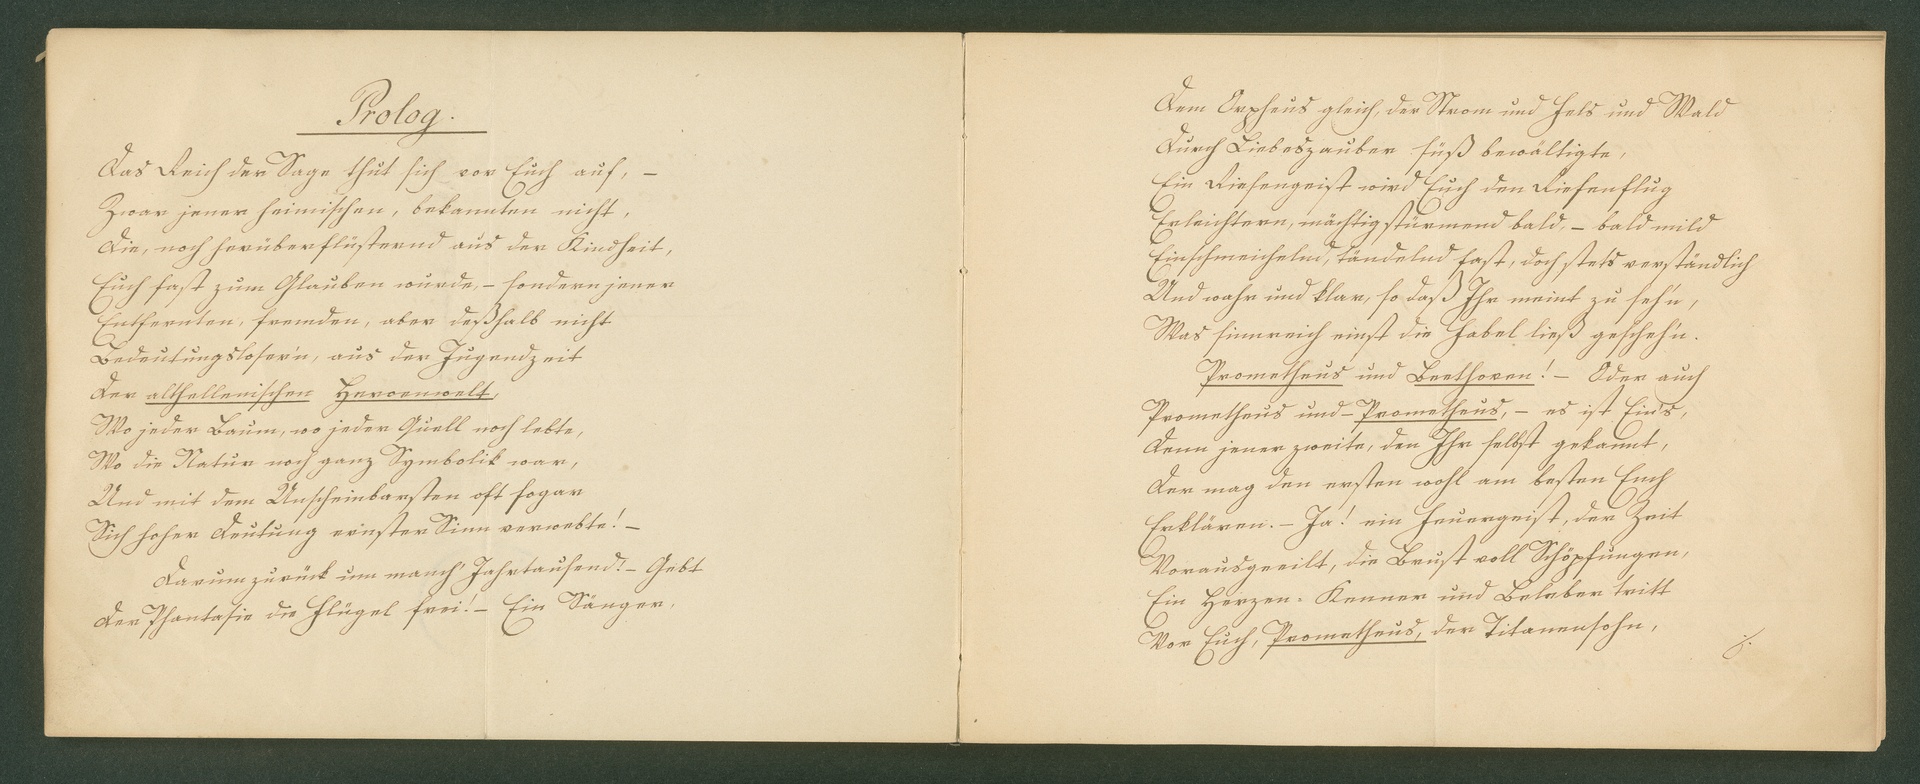 Prolog.
Das Reich der Sage thut sich vor Euch auf, –
Zwar jener heimischen, bekannten nicht,
Die, noch herüberflüsternd aus der Kindheit,
Euch fast zum Glauben wurde, – sondern jener
Entfernten, fremden, aber deßhalb nicht
Bedeutungsloser'n, aus der Jugendzeit
Der althellenischen Heroenwelt,
Wo jeder Baum, wo jeder Quell noch lebte,
Wo die Natur noch ganz Symbolik war,
Und mit dem Unscheinbarsten oft sogar
Sich hoher Deutung ernster Sinn verwebte! –
Darum zurück um manch' Jahrtausend! – Gebt
Der Phantasie die Flügel frei! – Ein Sänger,
Dem Orpheus gleich, der Strom und Fels und Wald
Durch Liebeszauber süß bewältigte,
Ein Riesengeist wird Euch den Riesenflug
Erleichtern, mächtig stürmend bald, – bald mild
Einschmeichelnd, tändelnd fast, doch stets verständlich
Und wahr und klar, so daß Ihr meint zu seh'n,
Was sinnreich einst die Fabel ließ gescheh'n.
Prometheus und Beethoven! – Oder auch
Prometheus und – Prometheus, – es ist Ein's,
Denn jener zweite, den Ihr selbst gekannt,
Der mag den ersten wohl am besten Euch
Erklären. – Ja! ein Feuergeist, der Zeit
Vorausgeeilt, die Brust voll Schöpfungen,
Ein Herzen-Kenner und Beleber tritt
Vor Euch, Prometheus, der Titanensohn,